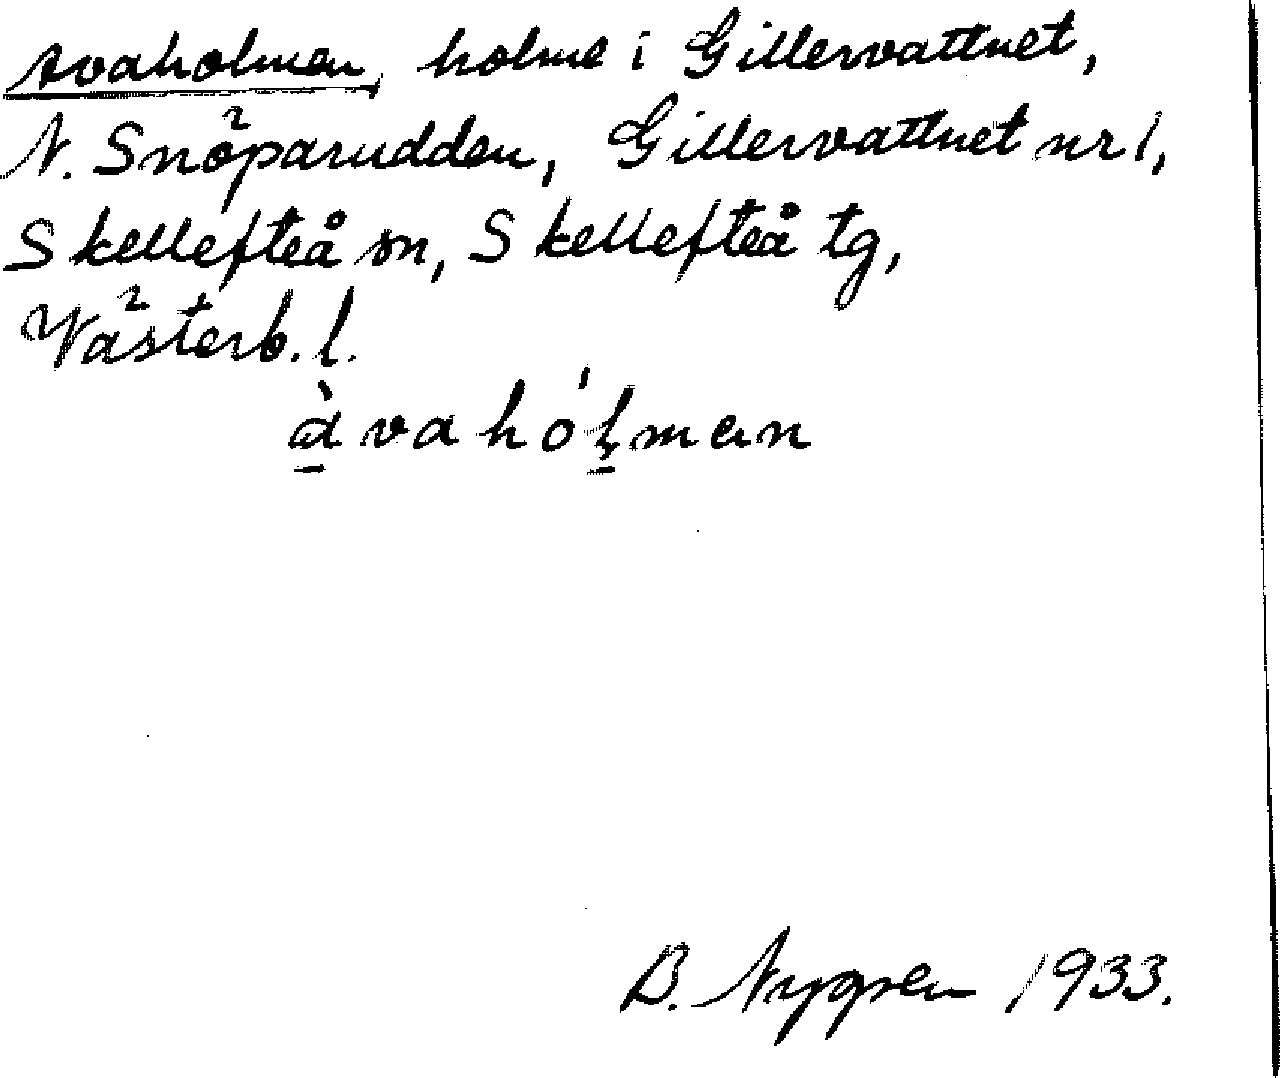 Avaholmen, holme i Gillervattnet,
N. Snöparudden, Gillervattnet nr 1,
Skellefteå sn, Skellefteå tg,
Västerb. l.
à̱vahó̱ḷmen
B. Nygren 1933.